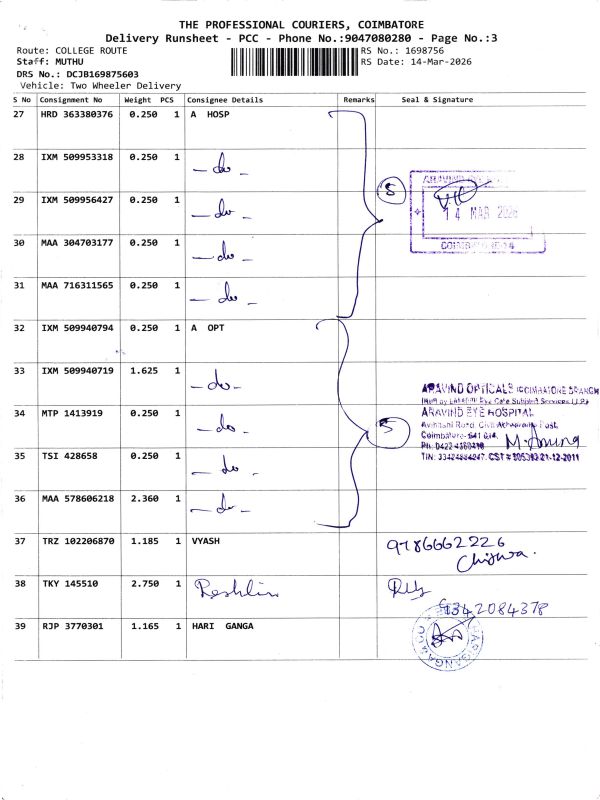 THE PROFESSIONAL COURIERS, COIMBATORE
Delivery Runsheet - PCC - Phone No.:9047080280 - Page No.:3
Route: COLLEGE ROUTE RS No.: 1698756
Staff: MUTHU RS Date: 14-Mar-2026
DRS No.: DCJB169875603
Vehicle: Two Wheeler Delivery
S No Consignment No Weight PCS Consignee Details Remarks Seal & Signature
27 HRD 363380376 0.250 1 A HOSP
28 IXM 509953318 0.250 1 - do -
5
29 IXM 509956427 0.250 1 - do -
14 MAR 2026
30 MAA 304703177 0.250 1 - do -
31 MAA 716311565 0.250 1 - do -
32 IXM 509940794 0.250 1 A OPT
33 IXM 509940719 1.625 1 - do -
ARAVIND OPTICALS (COIMBATORE BRANCH
34 MTP 1413919 0.250 1 - do -
ARAVIND EYE HOSPITAL
5
Coimbatore-641 014.
35 TSI 428658 0.250 1 - do -
36 MAA 578606218 2.360 1 - do -
37 TRZ 102206870 1.185 1 VYASH 9786662226
38 TKY 145510 2.750 1 Reshlin
9342084378
39 RJP 3770301 1.165 1 HARI GANGA